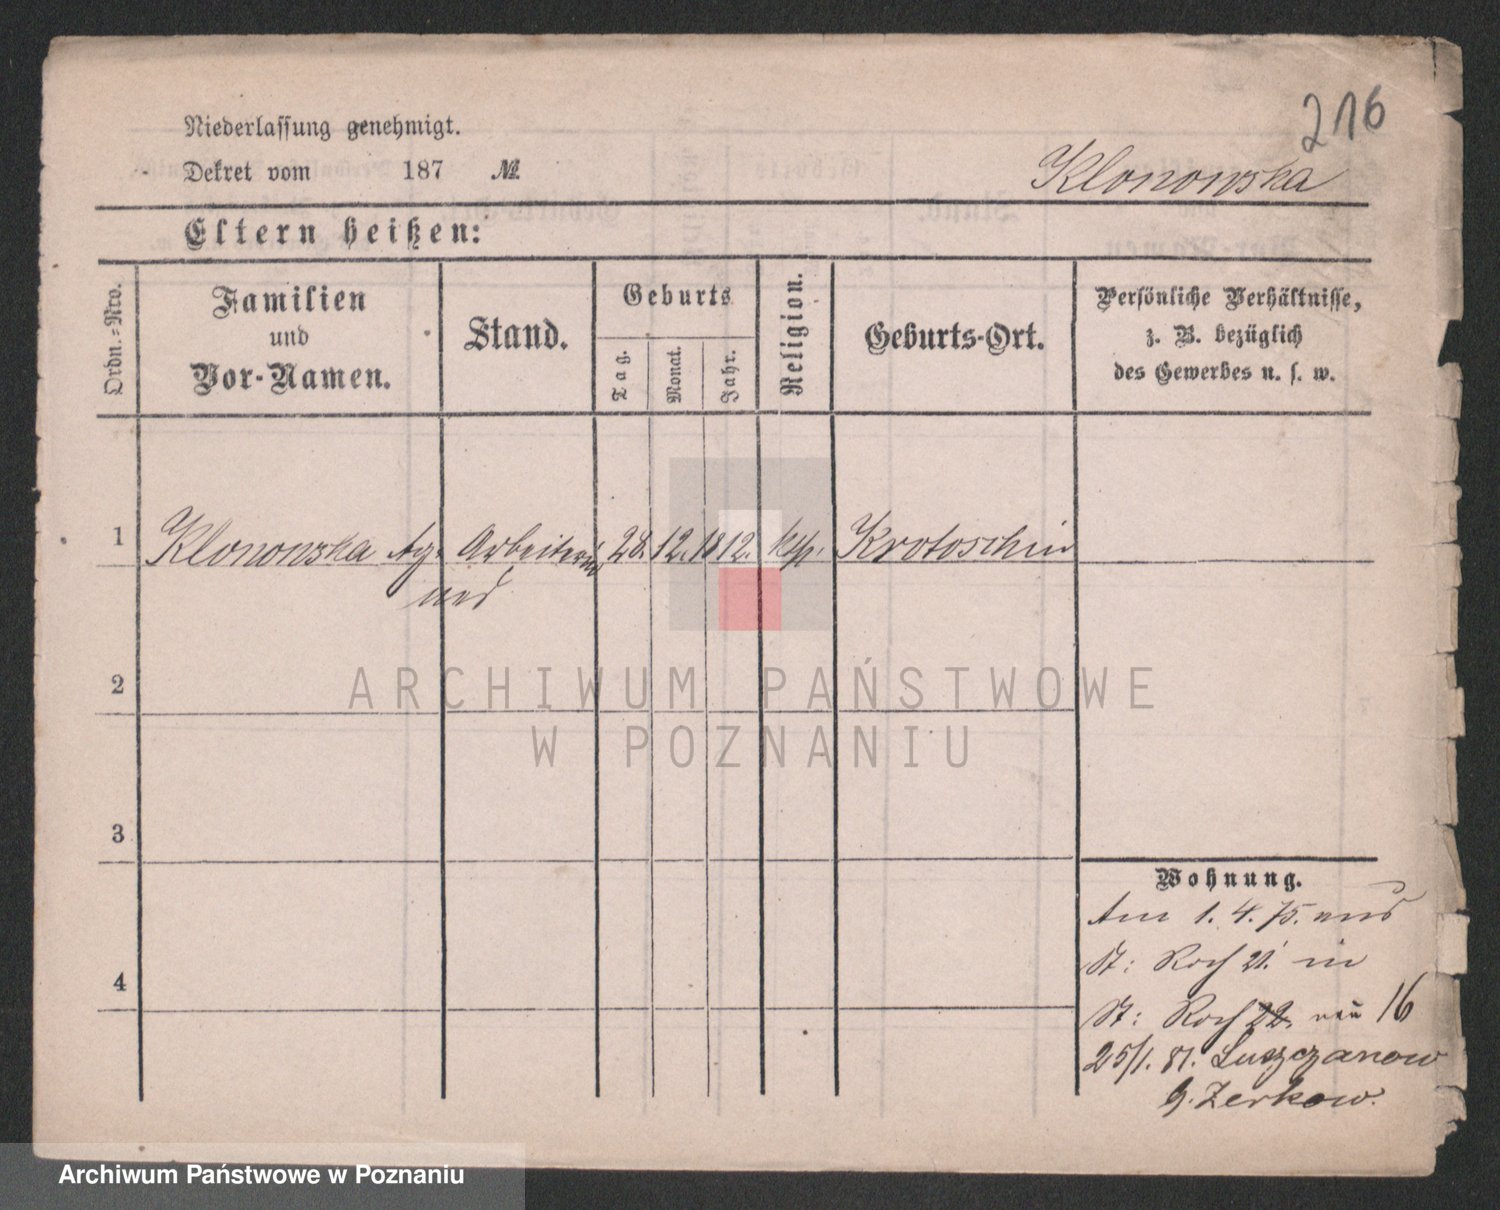 216
Niederlassung genehmigt.
Dekret vom 187 №
Klonowska
Eltern heißen:
Ordn.-Nro.
Familien
und
Vor-Namen.
Stand.
Geburts
Tag.
Monat.
Jahr.
Religion.
Geburts-Ort.
Persönliche Verhältnisse,
z. B. bezüglich
des Gewerbes u. s. w.
1 Klonowska Ag- Arbeiterin 28. 12. 1812. kth. Krotoschin
nes
2
3
4
Wohnung.
Am 1. 4. 75. aus
St: Roch 21. in
St: Roch 22. neu 16
25/1. 81. Luszczanow
b. Zerkow.
ARCHIWUM PAŃSTWOWE
W POZNANIU
Archiwum Państwowe w Poznaniu